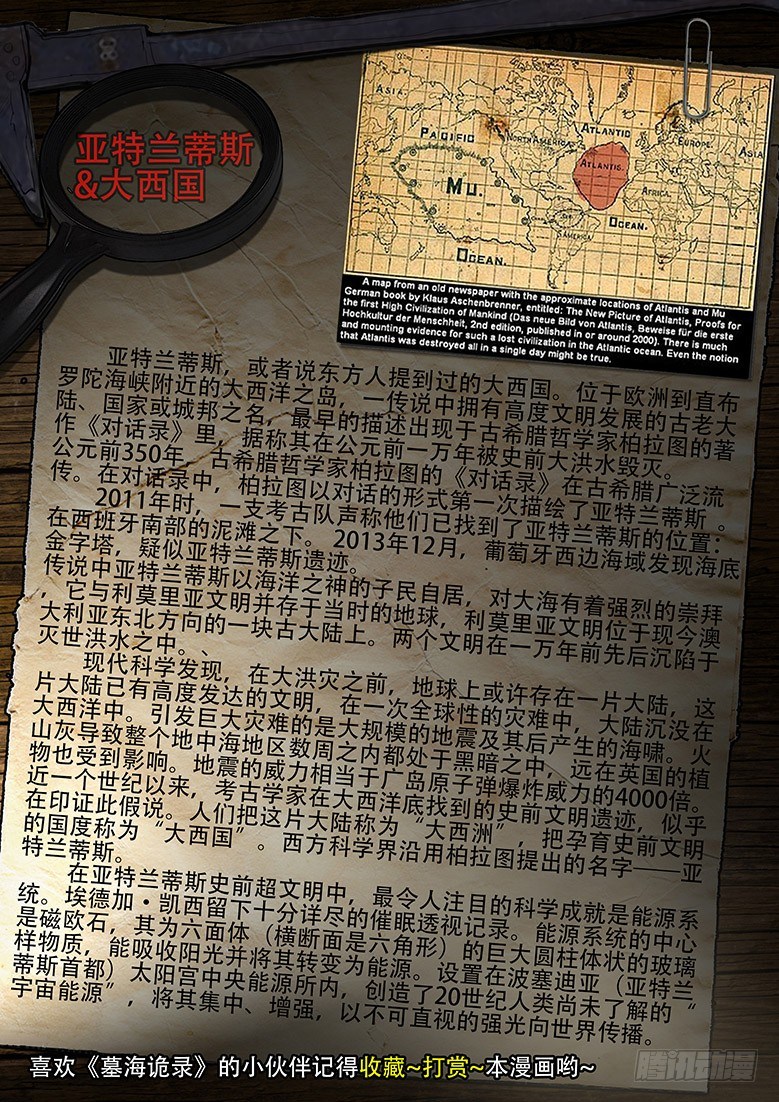 亚特兰蒂斯
&大西国
ASIA
PACIFIC
NORTH AMERICA
ATLANTIC
EUROPE.
ASIA
ATLANTIS.
MU.
AFRICA.
OCEAN.
S AMERICA
OCEAN.
A map from an old newspaper with the approximate locations of Atlantis and Mu
German book by Klaus Aschenbrenner, entitled: The New Picture of Atlantis, Proofs for
the first High Civilization of Mankind (Das neue Bild von Atlantis, Beweise für die erste
Hochkultur der Menschheit, 2nd edition, published in or around 2000). There is much
and mounting evidence for such a lost civilization in the Atlantic ocean. Even the notion
that Atlantis was destroyed all in a single day might be true.
亚特兰蒂斯，或者说东方人提到过的大西国。位于欧洲到直布
罗陀海峡附近的大西洋之岛，一传说中拥有高度文明发展的古老大
陆、国家或城邦之名，最早的描述出现于古希腊哲学家柏拉图的著
作《对话录》里，据称其在公元前一万年被史前大洪水毁灭。
公元前350年，古希腊哲学家柏拉图的《对话录》在古希腊广泛流
传。在对话录中，柏拉图以对话的形式第一次描绘了亚特兰蒂斯 。
2011年时，一支考古队声称他们已找到了亚特兰蒂斯的位置：
在西班牙南部的泥滩之下。2013年12月，葡萄牙西边海域发现海底
金字塔，疑似亚特兰蒂斯遗迹。
传说中亚特兰蒂斯以海洋之神的子民自居，对大海有着强烈的崇拜
，它与利莫里亚文明并存于当时的地球，利莫里亚文明位于现今澳
大利亚东北方向的一块古大陆上。两个文明在一万年前先后沉陷于
灭世洪水之中。、
现代科学发现，在大洪灾之前，地球上或许存在一片大陆，这
片大陆已有高度发达的文明，在一次全球性的灾难中，大陆沉没在
大西洋中。引发巨大灾难的是大规模的地震及其后产生的海啸。火
山灰导致整个地中海地区数周之内都处于黑暗之中，远在英国的植
物也受到影响。地震的威力相当于广岛原子弹爆炸威力的4000倍。
近一个世纪以来，考古学家在大西洋底找到的史前文明遗迹，似乎
在印证此假说。人们把这片大陆称为“大西洲”，把孕育史前文明
的国度称为“大西国”。西方科学界沿用柏拉图提出的名字——亚
特兰蒂斯。
在亚特兰蒂斯史前超文明中，最令人注目的科学成就是能源系
统。埃德加·凯西留下十分详尽的催眠透视记录。能源系统的中心
是磁欧石，其为六面体（横断面是六角形）的巨大圆柱体状的玻璃
样物质，能吸收阳光并将其转变为能源。设置在波塞迪亚（亚特兰
蒂斯首都）太阳宫中央能源所内，创造了20世纪人类尚未了解的“
宇宙能源”，将其集中、增强，以不可直视的强光向世界传播。
喜欢《墓海诡录》的小伙伴记得收藏~打赏~本漫画哟~
腾讯动漫